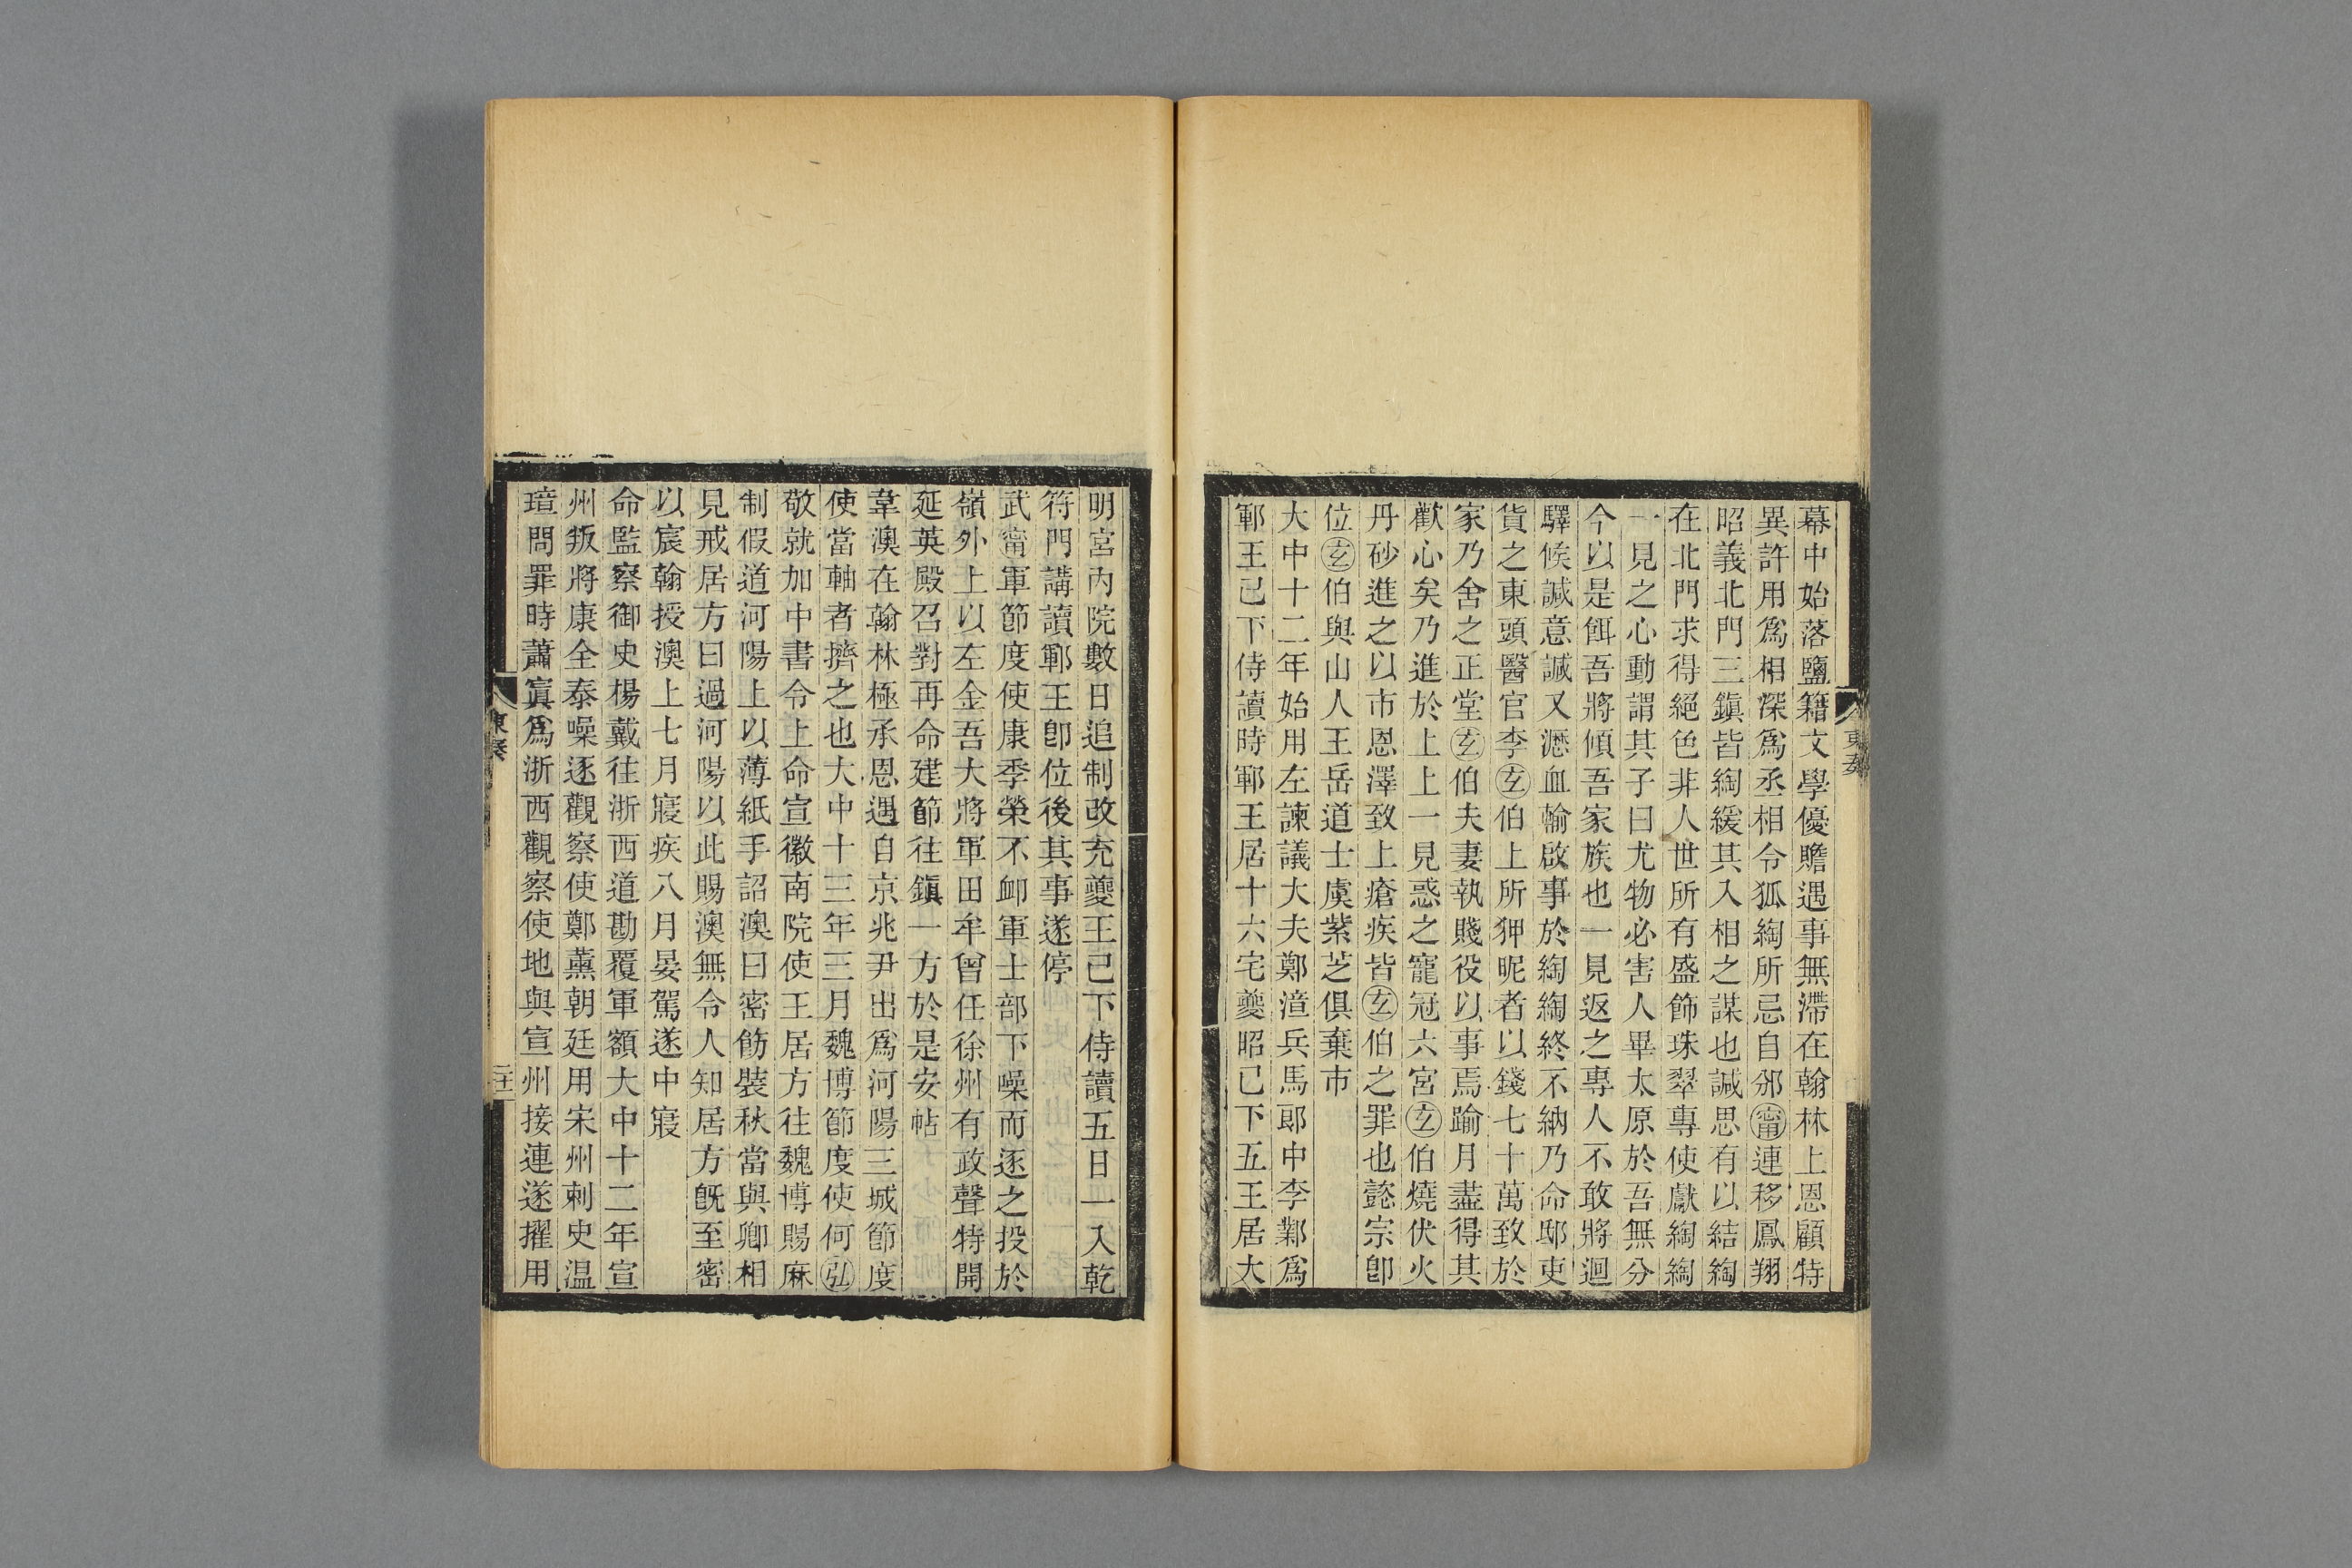 幕中始落鹽籍文學優贍遇事無滯在翰林上恩顧特
異許用爲相深爲丞相令狐綯所忌自邠甯連移鳳翔
昭義北門三鎭皆綯緩其入相之謀也諴思有以結綯
在北門求得絕色非人世所有盛飾珠翠專使獻綯綯
一見之心動謂其子曰尤物必害人畢太原於吾無分
今以是餌吾將傾吾家族也一見返之專人不敢將迴
驛候諴意諴又瀝血輸啟事於綯綯終不納乃命邸吏
貨之東頭醫官李玄伯上所狎昵者以錢七十萬致於
家乃舍之正堂玄伯夫妻執賤役以事焉踰月盡得其
歡心矣乃進於上上一見惑之寵冠六宮玄伯燒伏火
丹砂進之以市恩澤致上瘡疾皆玄伯之罪也懿宗卽
位玄伯與山人王岳道士虞紫芝俱棄市
大中十二年始用左諫議大夫鄭漳兵馬郎中李鄴爲
鄆王已下侍讀時鄆王居十六宅夔昭已下五王居大
明宮內院數日追制改充夔王已下侍讀五日一入乾
符門講讀鄆王卽位後其事遂停
武甯軍節度使康季榮不衈軍士部下噪而逐之投於
嶺外上以左金吾大將軍田牟曾任徐州有政聲特開
延英殿召對再命建節往鎭一方於是安帖
韋澳在翰林極承恩遇自京兆尹出爲河陽三城節度
使當軸者擠之也大中十三年三月魏博節度使何弘
敬就加中書令上命宣徽南院使王居方往魏博賜麻
制假道河陽上以薄紙手詔澳曰密飭裝秋當與卿相
見戒居方曰過河陽以此賜澳無令人知居方旣至密
以宸翰授澳上七月寢疾八月晏駕遂中寢
命監察御史楊戴往浙西道勘覆軍額大中十二年宣
州叛將康全泰噪逐觀察使鄭薰朝廷用宋州刺史温
璋問罪時蕭寘爲浙西觀察使地與宣州接連遂擢用